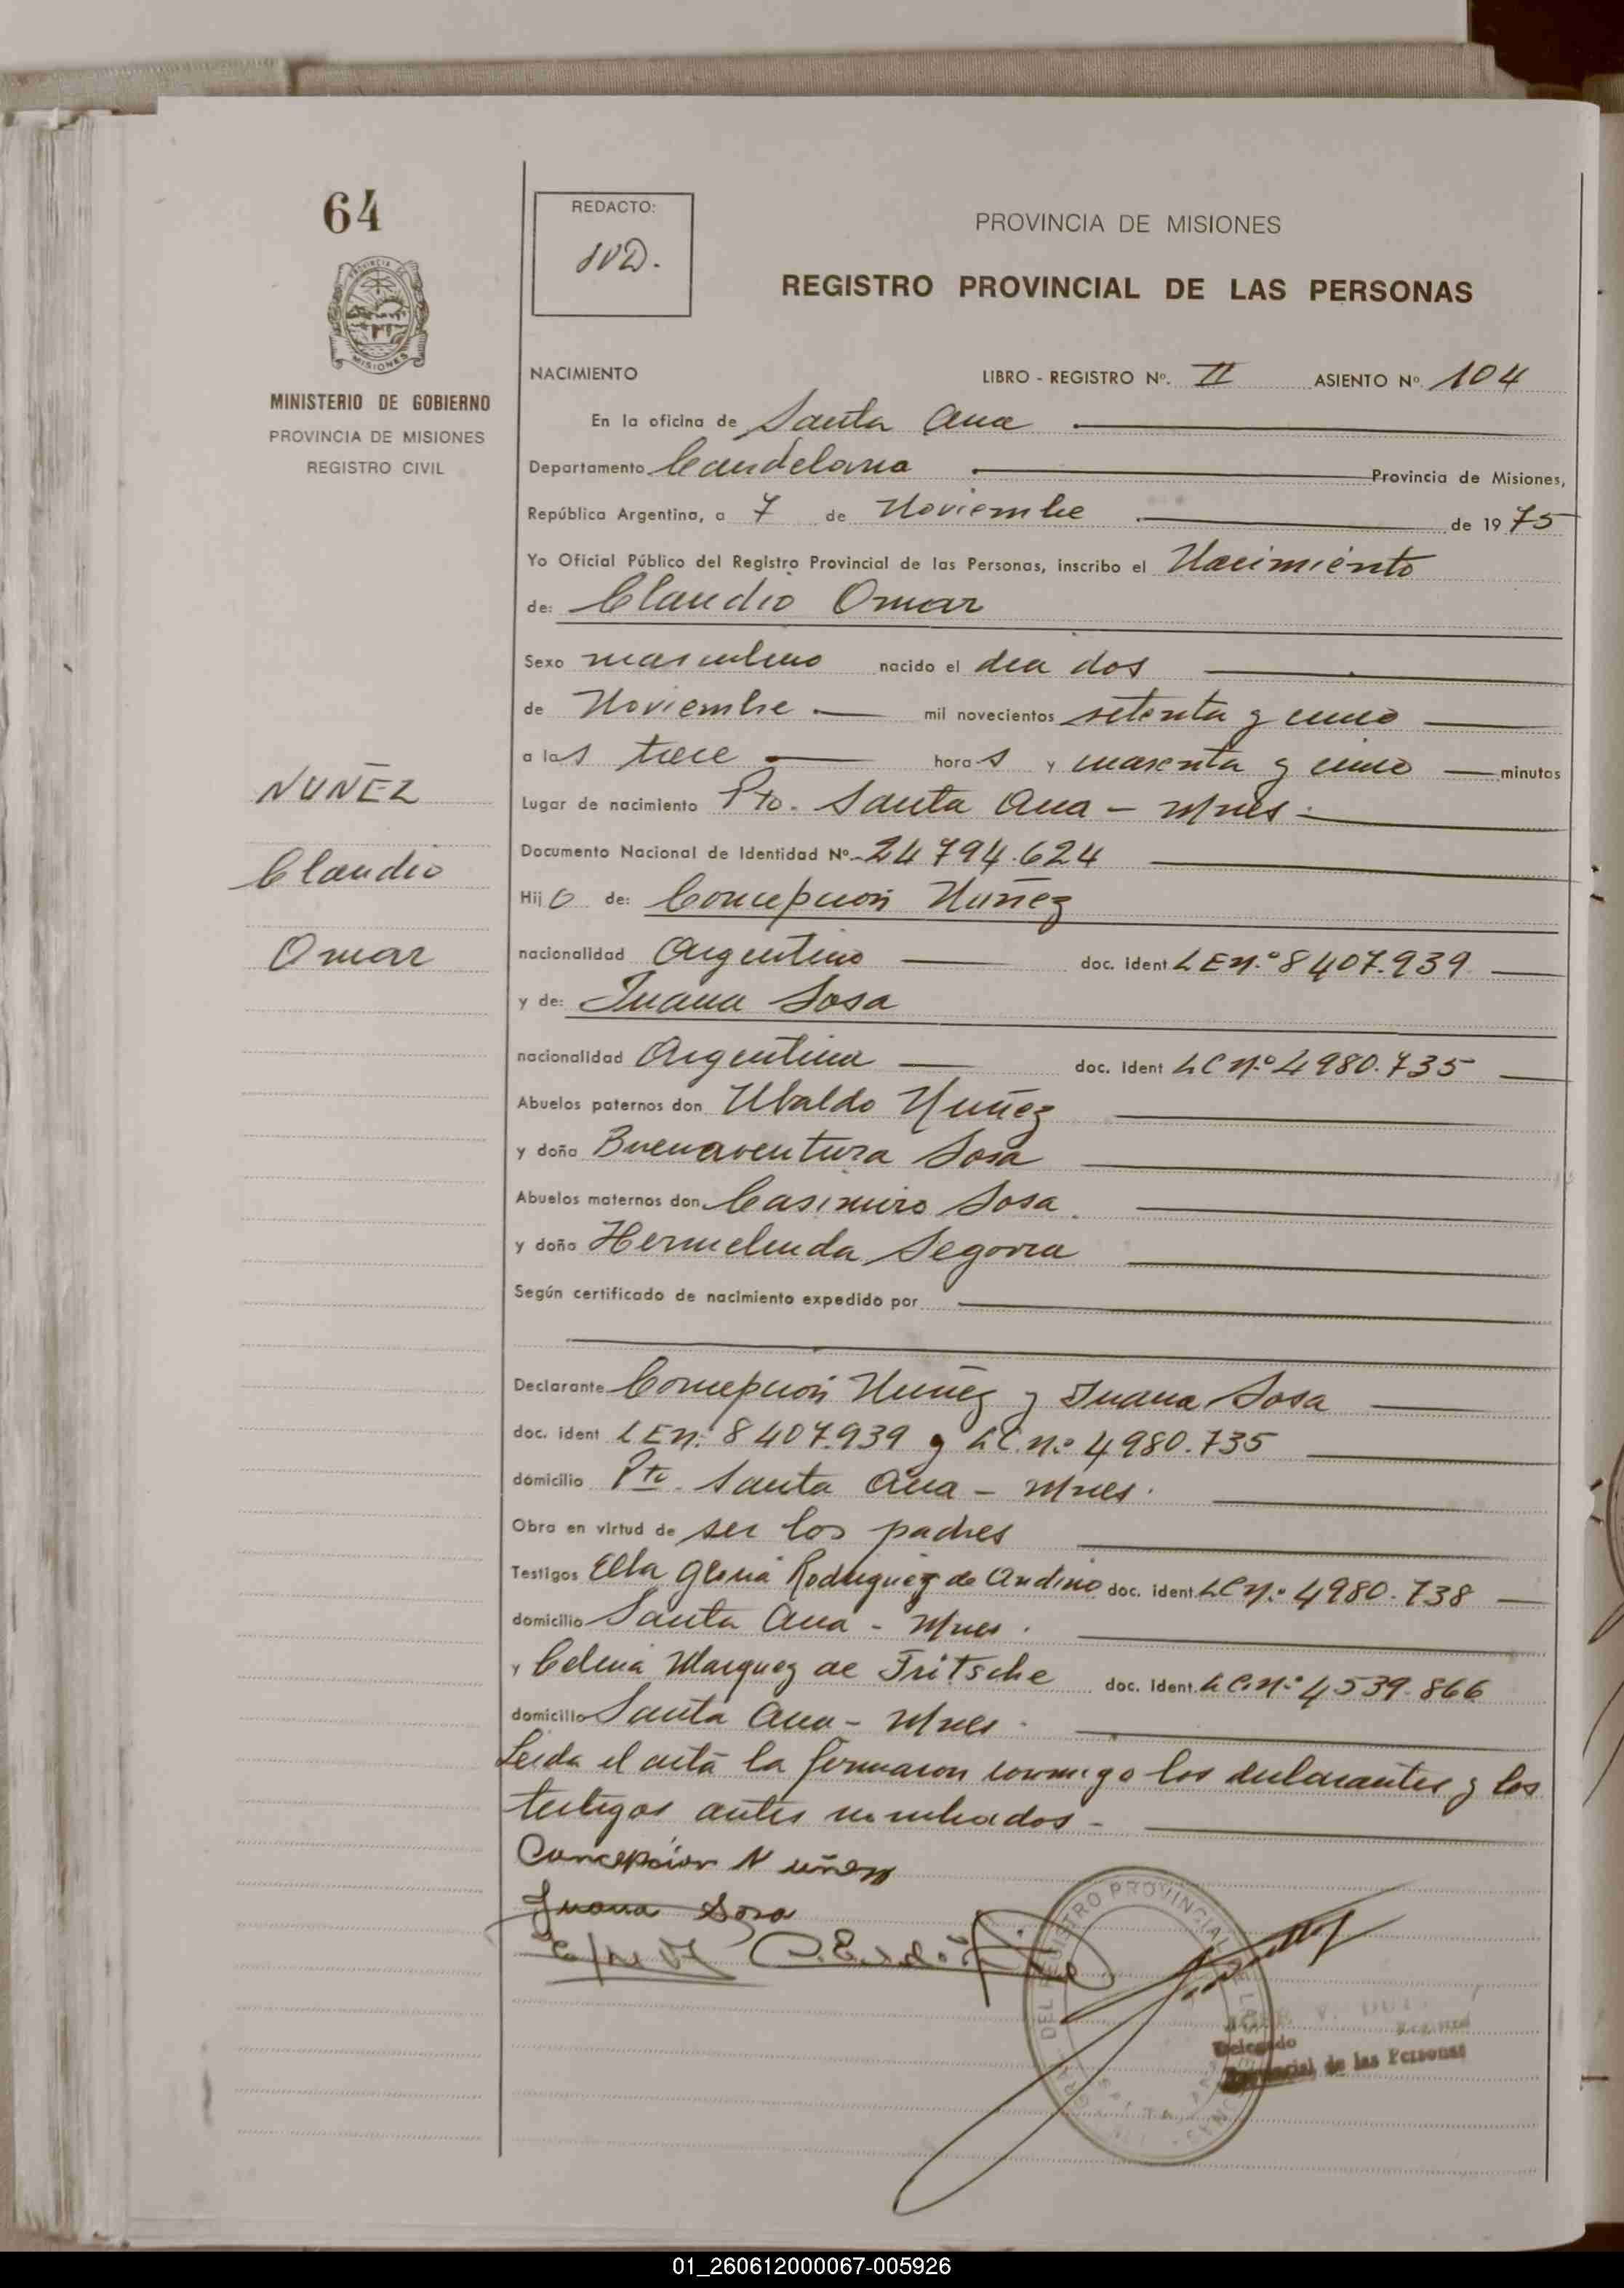 64
REDACTO:
JVD.
PROVINCIA DE MISIONES
REGISTRO PROVINCIAL DE LAS PERSONAS
PROVINCIA DE
MISIONES
MINISTERIO DE GOBIERNO
PROVINCIA DE MISIONES
REGISTRO CIVIL
NACIMIENTO LIBRO - REGISTRO Nº. II ASIENTO Nº. 104
En la oficina de Santa Ana
Departamento Candelaria Provincia de Misiones,
República Argentina, a 7 de Noviembre de 1975
Yo Oficial Público del Registro Provincial de las Personas, inscribo el Nacimiento
de: Claudio Omar
Sexo masculino nacido el dia dos
de Noviembre mil novecientos setenta y cinco
a las trece horas y cuarenta y cinco minutos
NUÑEZ
Claudio
Omar
Lugar de nacimiento Pto. Santa Ana - Mnes.
Documento Nacional de Identidad Nº 24794.624
Hijo de: Concepción Nuñez
nacionalidad Argentino doc. ident LE n.º 8407.939
y de: Juana Sosa
nacionalidad Argentina doc. ident LC n.º 4980.735
Abuelos paternos don Ubaldo Nuñez
y doña Buenaventura Sosa
Abuelos maternos don Casimiro Sosa.
y doña Hermelinda Segovia
Según certificado de nacimiento expedido por
Declarante Concepción Nuñez y Juana Sosa
doc. ident LE n.º 8407.939 y LC. n.º 4980.735
domicilio Pto. Santa Ana - Mnes.
Obra en virtud de ser los padres
Testigos Elba Gloria Rodriguez de Andino doc. ident. LC n.º 4980.738
domicilio Santa Ana - Mnes.
y Celina Marquez de Fritsche doc. ident. LC. n.º 4539.866
domicilio Santa Ana - Mnes.
Leida el acta la firmaron conmigo los declarantes y los
testigos antes nombrados -
Concepcion Nuñez
Juana Sosa
DEL REGISTRO PROVINCIAL DE LAS
Delegado
Provincial de las Personas
01_260612000067-005926